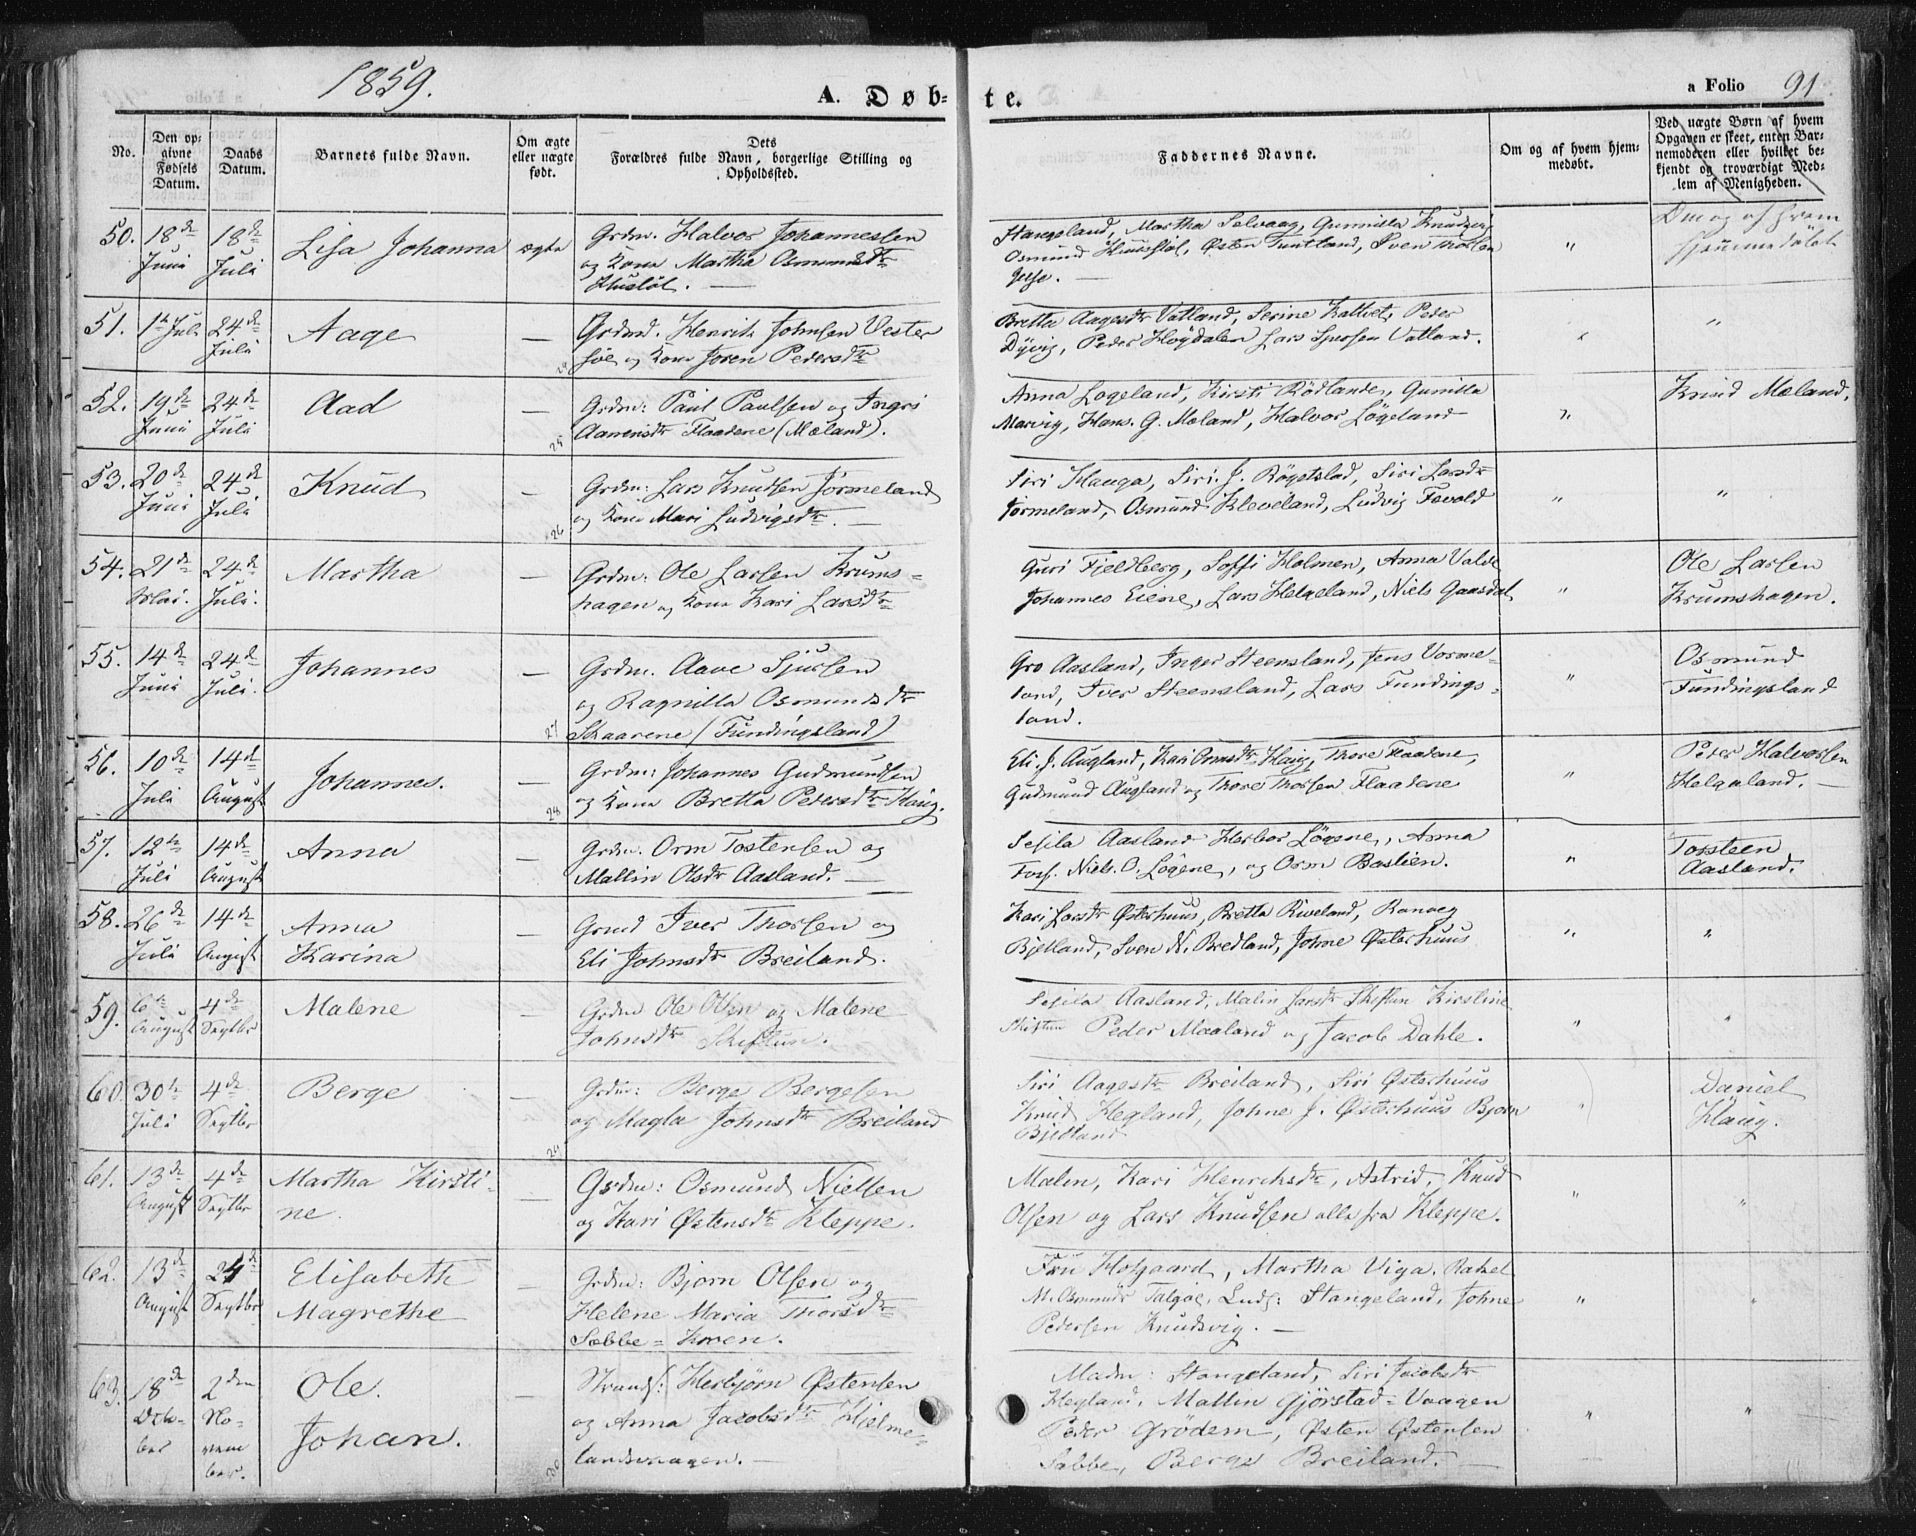 1859.
A. Døb-
te.
a Folio 91.
No.
Den op-
givne
Fødsels
Datum.
Daabs
Datum.
Barnets fulde Navn.
Om ægte
eller uægte
født.
Dets
Forældres fulde Navn, borgerlige Stilling og
Opholdssted.
Faddernes Navne.
Om og af hvem hjem-
medøbt.
Ved uægte Børn af hvem
Opgaven er skeet, enten Bar-
nemoderen eller hvilket be-
kjendt og troværdigt Med-
lem af Menigheden.
Om og af hvem
hjemmedøbt
50. 18de Juni 18de Juli Lisa Johanna ægte
Grdm. Halvor Johannessen
og Kone Martha Osmundsdtr
Huslöt.
Stangeland, Martha Selvaag, Gunnilla Knudsvig
Osmund Østen Tuntland, Sven Thorsen
"
51. 1te Juli 24de Juli Aage —
Grdmd. Henrik Johnsen Vester
og Kone Joren Pedersdtr
Bretta Aagesdtr Vatland, Serine Peder
Dÿvig, Peder Høÿdalen Lars Vatland.
"
52. 19de Juni 24de Juli Aad —
Grdm: Paul Paulsen og Ingri
Aanensdtr Flaadene (Mæland).
25
Anna Løgeland, Kirsti Rödland, Gunilla
Marvig, Hans. G. Mæland, Halvor Lögeland
"
Knud Mæland,
53. 20de Juni 24de Juli Knud —
Grdm: Lars Knudsen Tørmeland
og Kone Mari Ludvigsdtr. —
26
Siri Hauga, Siri. J. Siri Larsdtr
Tørmeland, Osmund Kleveland, Ludvig
" "
54. 21de 24de Juli. Martha —
Grdm: Ole Larsen Krums-
hagen og Kone Kari Larsdtr
Guri Fjeldberg, Soffi Holmen, Anna Valde
Johannes Eiene, Lars Helgeland, Niels Gaasdal
"
Ole Larsen
Krumshagen.
55. 14de Juni 24de Juli. Johannes —
Grdm. Aave Sjursen
og Ragnilla Osmundsdtr
Skaarene (Fundingsland)
27
Gro Aasland, Inger Steensland, Jens Vorme-
land, Iver Steensland, Lars Fundings-
land.
"
Osmund
Fundingsland
56. 10de Juli 14de August Johannes. —
Grdm: Johannes Gudmundsen
og Kone Bretta Pedersdtr Haug.
28
Eli. J. Augland, Kari Ormsdtr Haug, Thore Flaadene,
Gudmund Augland og Thore Thorsen Flaadene
"
Peder Halvorsen
Helgaland. —
57. 12te Juli 14de August Anna —
Grdm. Orm Tostensen og
Mallin Olsdtr Aasland. —
Sesila Aasland Herbor Lögene, Anna
Niels. O. Lögene, og Orm Bastien.
"
Torsteen
Aasland.
58. 26de Juli 14de August Anna Karina —
Grmd Iver Thorsen og
Eli Johnsdtr Breiland.
Kari Larsdtr Østerhuus, Bretta Riveland, Ranveg
Bjelland, Sven N. Bredland, Johne Østerhuus
" "
59. 6te August 4de Septbr Malene —
Grdm Ole Olsen og Malene
Johnsdtr Skiftun.
Sesila Aasland, Malin Larsdtr Skiftun Kirstine
Skiftun Peder Maaland og Jacob Dahle.
" "
60. 30te Juli 4de Septbr Berge —
Grdm: Berge Bergesen
og Magla Johnsdtr Breiland
29
Siri Aagesdtr Breiland, Siri Østerhuus
Knud Hegland, Johne J. Østerhuus Bjørn
Bjelland
"
Daniel
Haug.
61. 13de August 4de Septbr Martha Kirsti-
ne. —
Grdm: Osmund Nielsen
og Kari Østensdtr Kleppe.
Malen, Kari Henriksdtr, Astrid, Knud
Olsen og Lars Knudsen alle fra Kleppe.
" "
62. 13de August 24de Septbr Elisabeth
Magrethe —
Grdm: Bjørn Olsen og
Helene Maria Thorsdtr
Sæbbe-
Fru Hofgaard, Martha Viga. Rakel
Talgøe, Stangeland, Johne
Pedersen Knudsvig. —
" "
63. 18de Octo-
ber 2den No-
vem
ber. Ole.
Johan. —
Strands: Herbjørn Østensen
og Anna Jacobsdtr Hjelme-
landsvaagen. —
30
Madm: Stangeland, Siri Jacobsdtr
Hegland, Mallin Gjörstad-Vaagen
Peder Grödem, Østen Østensen
Sæbbe, Berge Breiland. —
" "